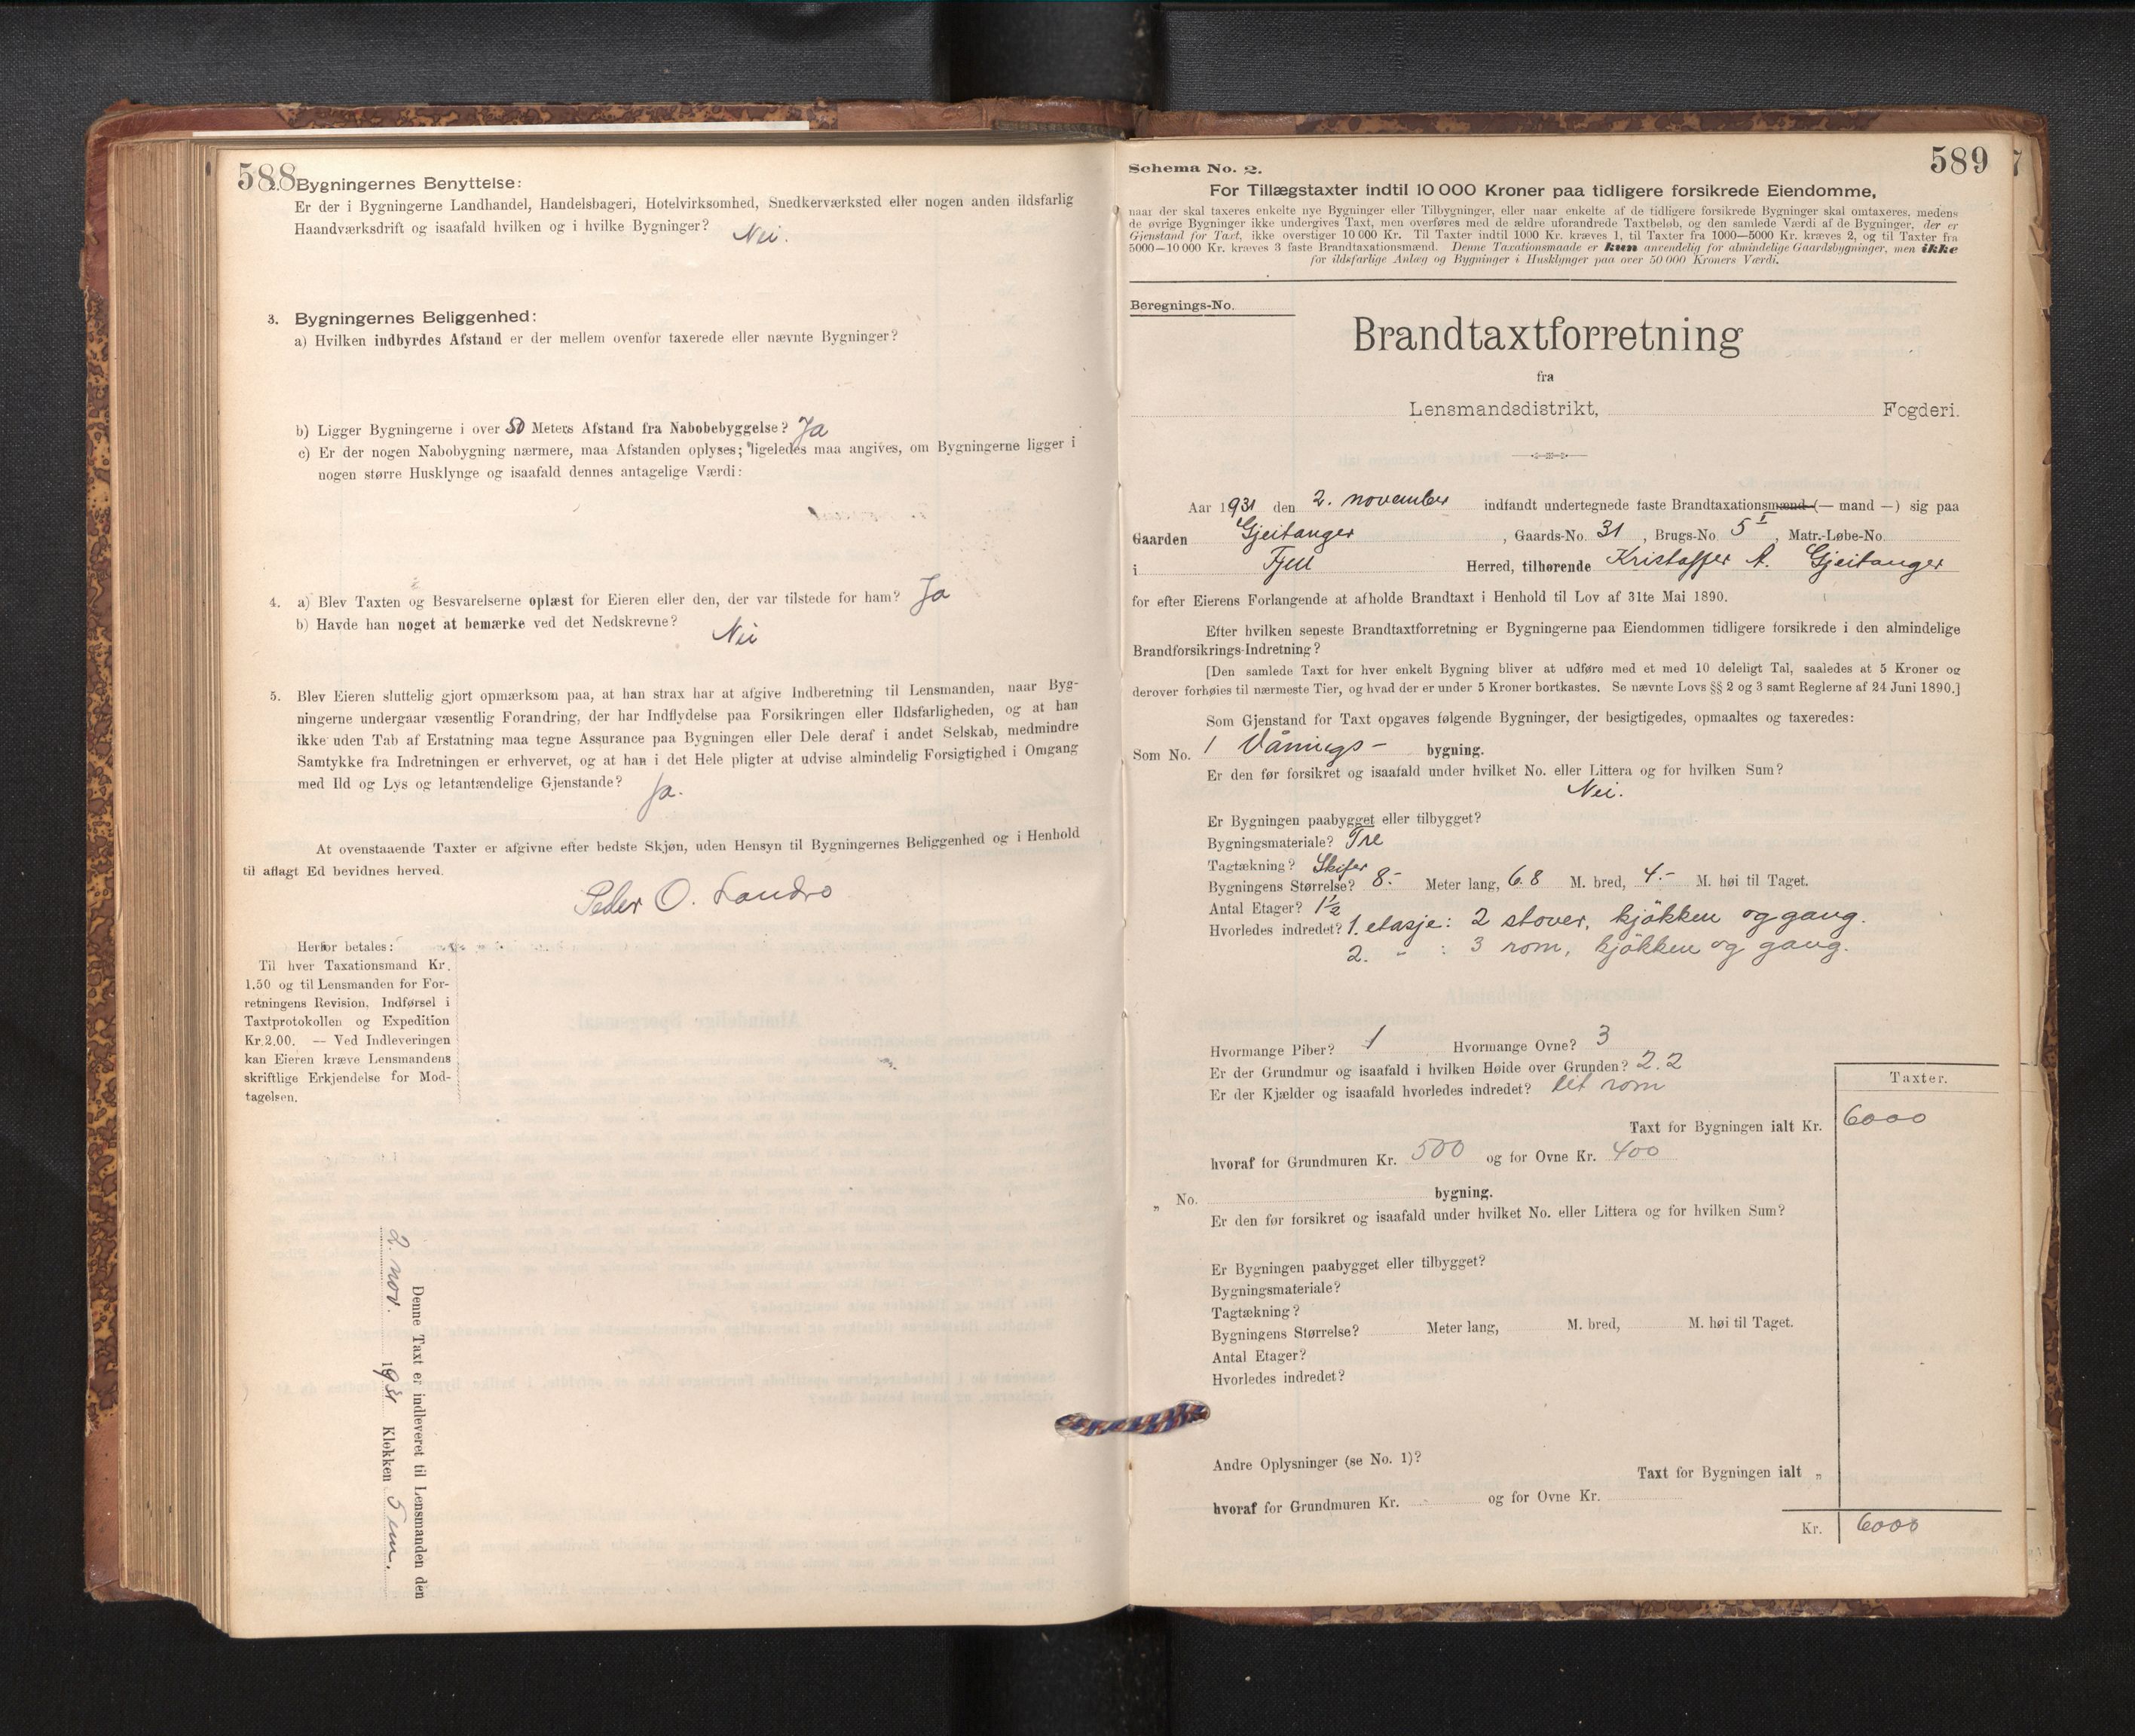 588
2. Bygningernes Benyttelse:
Er der i Bygningerne Landhandel, Handelsbageri, Hotelvirksomhed, Snedkerværksted eller nogen anden ildsfarlig
Haandværksdrift og isaafald hvilken og i hvilke Bygninger? Nei.
3. Bygningernes Beliggenhed:
a) Hvilken indbyrdes Afstand er der mellem ovenfor taxerede eller nævnte Bygninger?
b) Ligger Bygningerne i over 50 Meters Afstand fra Nabobebyggelse? Ja
c) Er der nogen Nabobygning nærmere, maa Afstanden oplyses; ligeledes maa angives, om Bygningerne ligger i
nogen større Husklynge og isaafald dennes antagelige Værdi:
4. a) Blev Taxten og Besvarelserne oplæst for Eieren eller den, der var tilstede for ham? Ja
b) Havde han noget at bemærke ved det Nedskrevne? Nei
5. Blev Eieren sluttelig gjort opmærksom paa, at han strax har at afgive Indberetning til Lensmanden, naar Byg-
ningerne undergaar væsentlig Forandring, der har Indflydelse paa Forsikringen eller Ildsfarligheden, og at han
ikke uden Tab af Erstatning maa tegne Assurance paa Bygningen eller Dele deraf i andet Selskab, medmindre
Samtykke fra Indretningen er erhvervet, og at han i det Hele pligter at udvise almindelig Forsigtighed i Omgang
med Ild og Lys og letantændelige Gjenstande? Ja.
At ovenstaaende Taxter er afgivne efter bedste Skjøn, uden Hensyn til Bygningernes Beliggenhed og i Henhold
til aflagt Ed bevidnes herved.
Peder O. Landro
Herfor betales:
Til hver Taxationsmand Kr.
1.50 og til Lensmanden for For-
retningens Revision, Indførsel i
Taxtprotokollen og Expedition
Kr.2.00. — Ved Indleveringen
kan Eieren kræve Lensmandens
skriftlige Erkjendelse for Mod-
tagelsen.
Denne Taxt er indleveret til Lensmanden den
2. nov. 1931 Klokken 5 em.
589
Schema No. 2.
For Tillægstaxter indtil 10 000 Kroner paa tidligere forsikrede Eiendomme,
naar der skal taxeres enkelte nye Bygninger eller Tilbygninger, eller naar enkelte af de tidligere forsikrede Bygninger skal omtaxeres, medens
de øvrige Bygninger ikke undergives Taxt, men overføres med de ældre uforandrede Taxtbeløb, og den samlede Værdi af de Bygninger, der er
Gjenstand for Taxt, ikke overstiger 10 000 Kr. Til Taxter indtil 1000 Kr. kræves 1, til Taxter fra 1000—5000 Kr. kræves 2, og til Taxter fra
5000—10 000 Kr. kræves 3 faste Brandtaxationsmænd. Denne Taxationsmaade er kun anvendelig for almindelige Gaardsbygninger, men ikke
for ildsfarlige Anlæg og Bygninger i Husklynger paa over 50 000 Kroners Værdi.
Beregnings-No.
Brandtaxtforretning
fra
Lensmandsdistrikt, Fogderi.
Aar 1931 den 2. november indfandt undertegnede faste Brandtaxationsmænd (— mand —) sig paa
Gaarden Gjeitanger, Gaards-No. 31, Brugs-No. 5 I, Matr.-Løbe-No.
i Fjell Herred, tilhørende Kristoffer A. Gjeitanger
for efter Eierens Forlangende at afholde Brandtaxt i Henhold til Lov af 31te Mai 1890.
Efter hvilken seneste Brandtaxtforretning er Bygningerne paa Eiendommen tidligere forsikrede i den almindelige
Brandforsikrings-Indretning?
[Den samlede Taxt for hver enkelt Bygning bliver at udføre med et med 10 deleligt Tal, saaledes at 5 Kroner og
derover forhøies til nærmeste Tier, og hvad der er under 5 Kroner bortkastes. Se nævnte Lovs §§ 2 og 3 samt Reglerne af 24 Juni 1890.]
Som Gjenstand for Taxt opgaves følgende Bygninger, der besigtigedes, opmaaltes og taxeredes:
Som No. 1 Vånings- bygning.
Er den før forsikret og isaafald under hvilket No. eller Littera og for hvilken Sum?
Nei.
Er Bygningen paabygget eller tilbygget?
Bygningsmateriale? Tre
Tagtækning? Skifer
Bygningens Størrelse? 8.- Meter lang, 6.8 M. bred, 4.- M. høi til Taget.
Antal Etager? 1½
Hvorledes indredet? 1. etasje: 2 stover, kjøkken og gang.
2. " : 3 rom, kjøkken og gang.
Hvormange Piber? 1 Hvormange Ovne? 3
Er der Grundmur og isaafald i hvilken Høide over Grunden? 2.2
Er der Kjælder og isaafald hvorledes indredet? eit rom
Taxter.
Taxt for Bygningen ialt Kr. 6000
hvoraf for Grundmuren Kr. 500 og for Ovne Kr. 400
„ No. bygning.
Er den før forsikret og isaafald under hvilket No. eller Littera og for hvilken Sum?
Er Bygningen paabygget eller tilbygget?
Bygningsmateriale?
Tagtækning?
Bygningens Størrelse? Meter lang, M. bred, M. høi til Taget.
Antal Etager?
Hvorledes indredet?
Andre Oplysninger (se No. 1)?
Taxt for Bygningen ialt „
hvoraf for Grundmuren Kr. og for Ovne Kr.
Kr. 6000